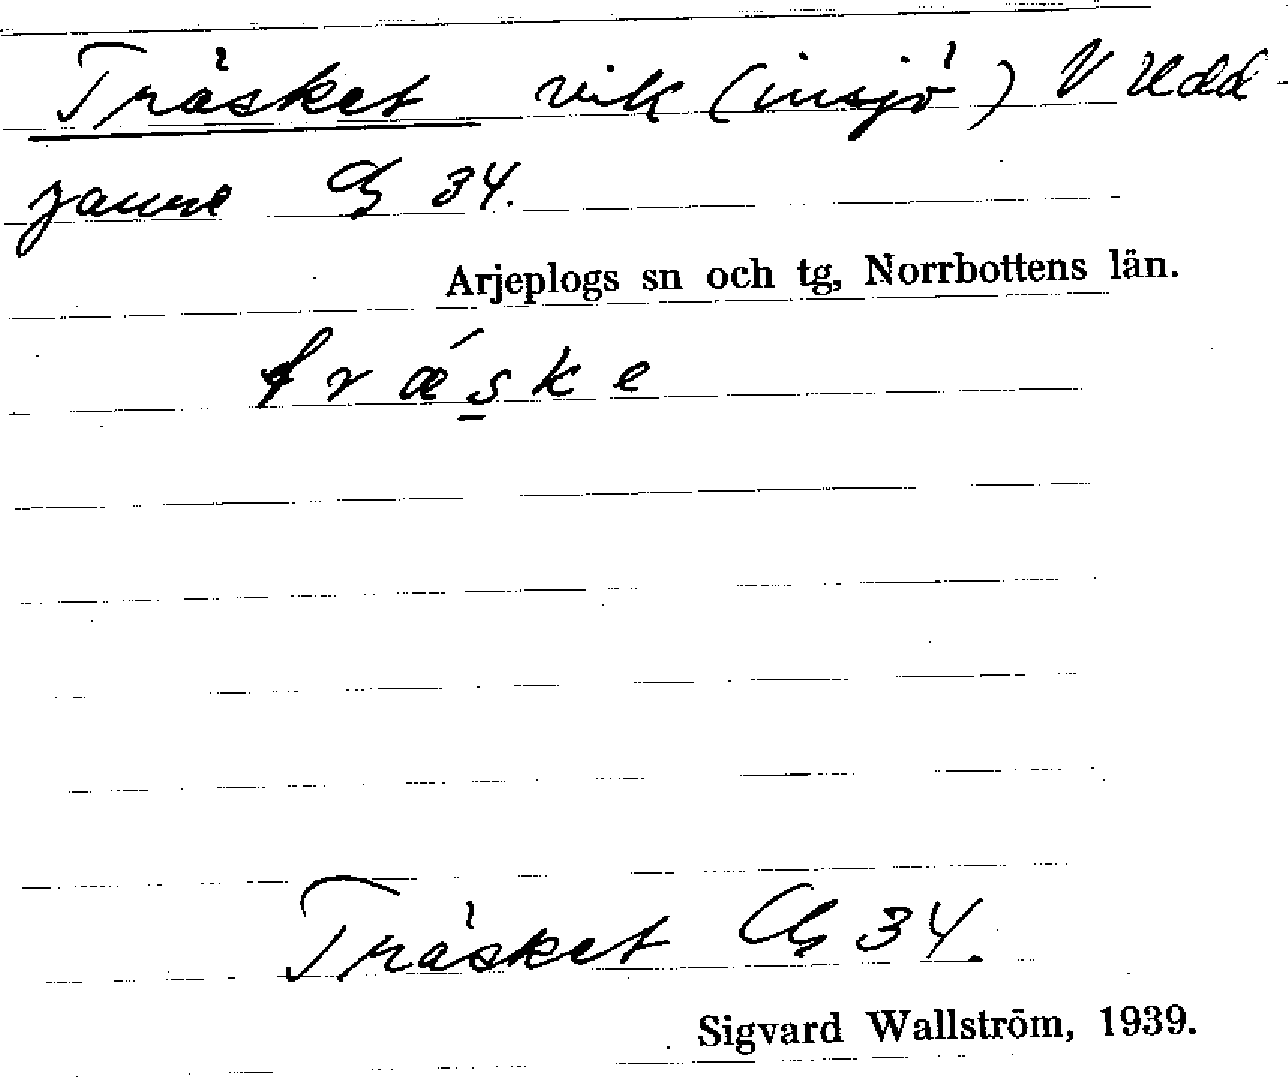 Träsket vik (insjö) V Udd-
jaure Gs 34.
Arjeplogs sn och tg, Norrbottens län.
trǽs̱ke
Träsket Gs 34.
Sigvard Wallström, 1939.